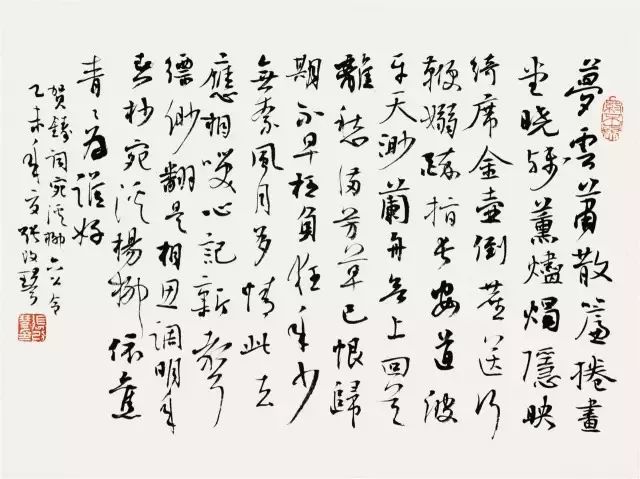 夢雲蕭散簾捲畫
堂曉殘薰燼燭隱映
綺席金壺倒塵送行
鞭嫋醉指長安道波
平天渺蘭舟欲上回首
離愁滿芳草已恨歸
期不早枉負狂年少
無奈風月多情此去
應相笑心記新聲
縹緲翻是相思調明年
春杪宛溪楊柳依舊
青〻為誰好
賀鑄詞宛溪柳六幺令
乙未年夏張改琴